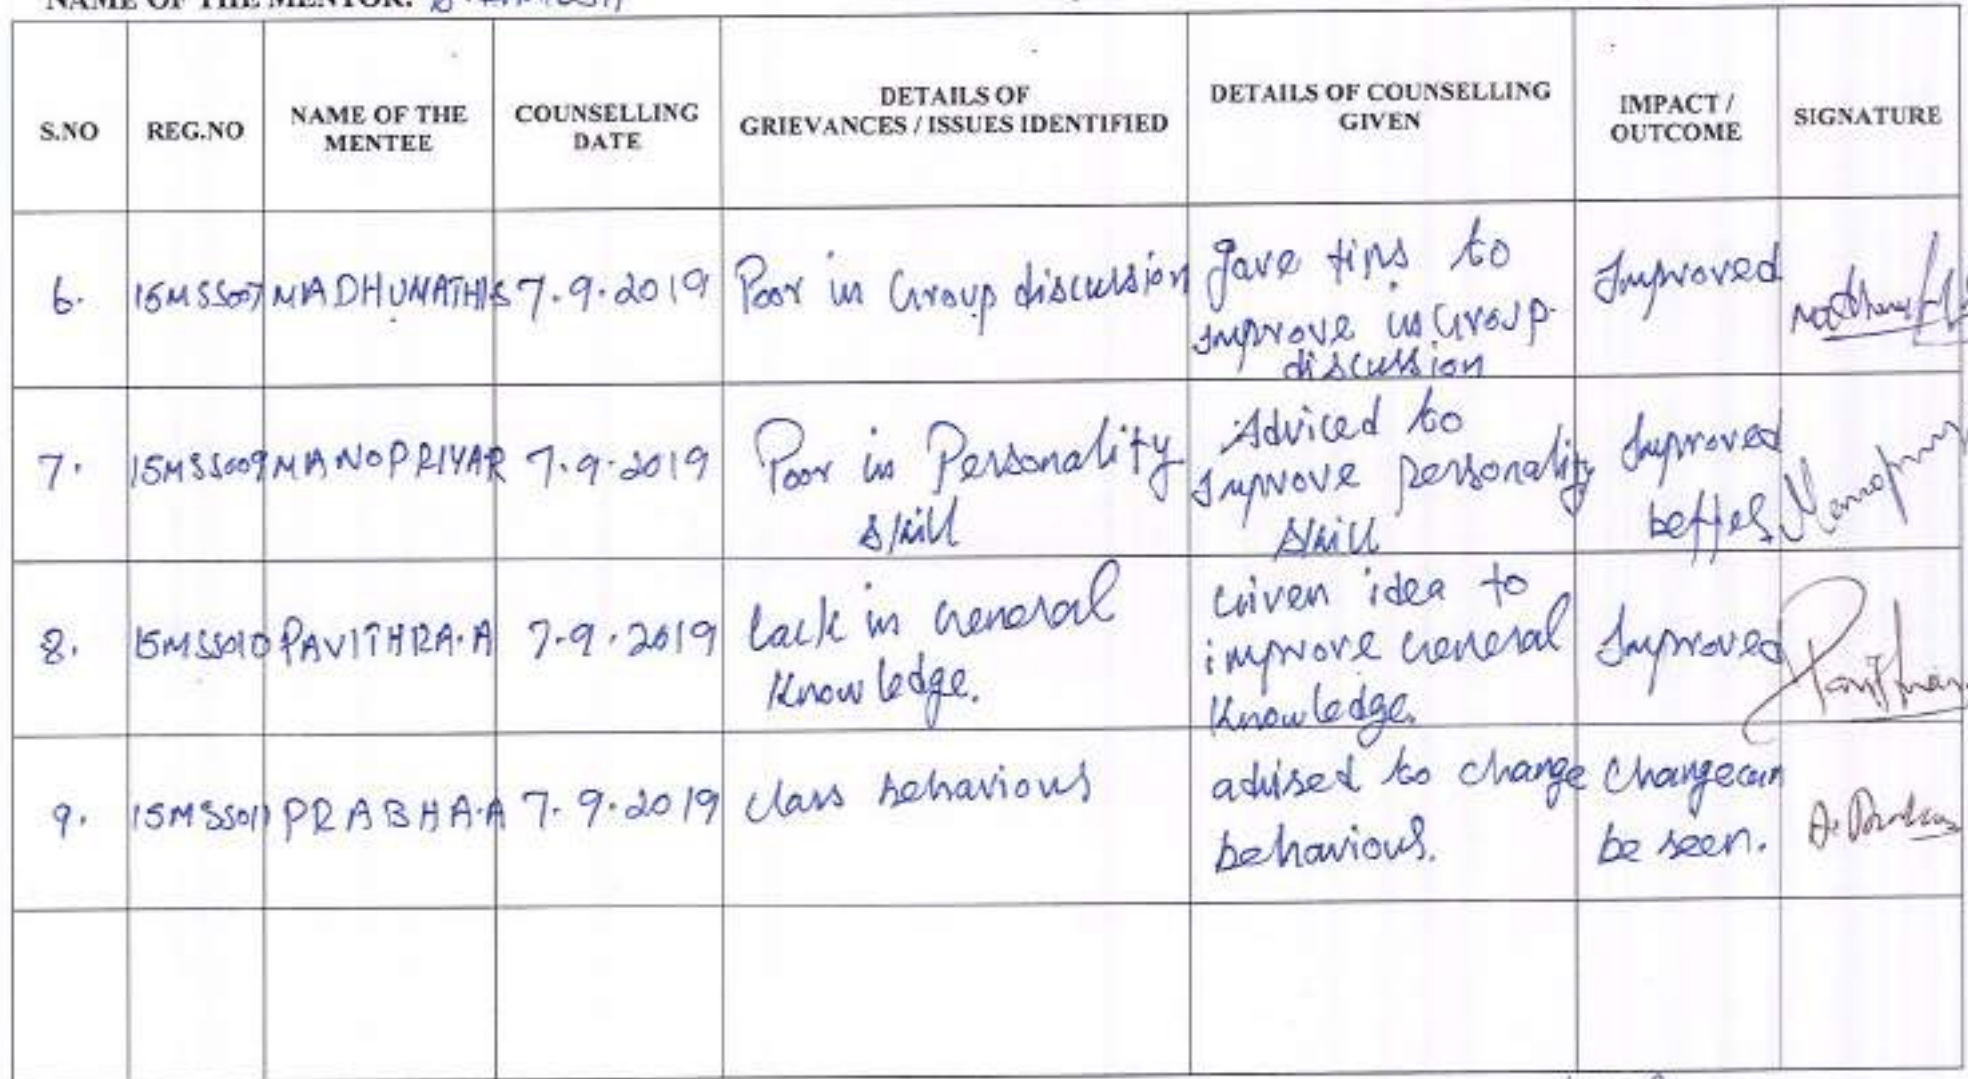 NAME OF THE MENTOR:
S.NO
REG.NO
NAME OF THE
MENTEE
COUNSELLING
DATE
DETAILS OF
GRIEVANCES / ISSUES IDENTIFIED
DETAILS OF COUNSELLING
GIVEN
IMPACT /
OUTCOME
SIGNATURE
6.
15MSS007
MADHUNATHI S
7.9.2019
Poor in Group discussion
Gave tips to
improve in Group
discussion
Improved
7.
15MSS009
MANOPRIYA R
7.9.2019
Poor in Personality
skill
Adviced to
improve personality
skill
Improved
better
8.
15MSS010
PAVITHRA.A
7.9.2019
lack in General
Knowledge.
Given idea to
improve General
Knowledge.
Improved
9.
15MSS011
PRABHA.A
7.9.2019
class behaviour
advised to change
behaviour.
Change can
be seen.